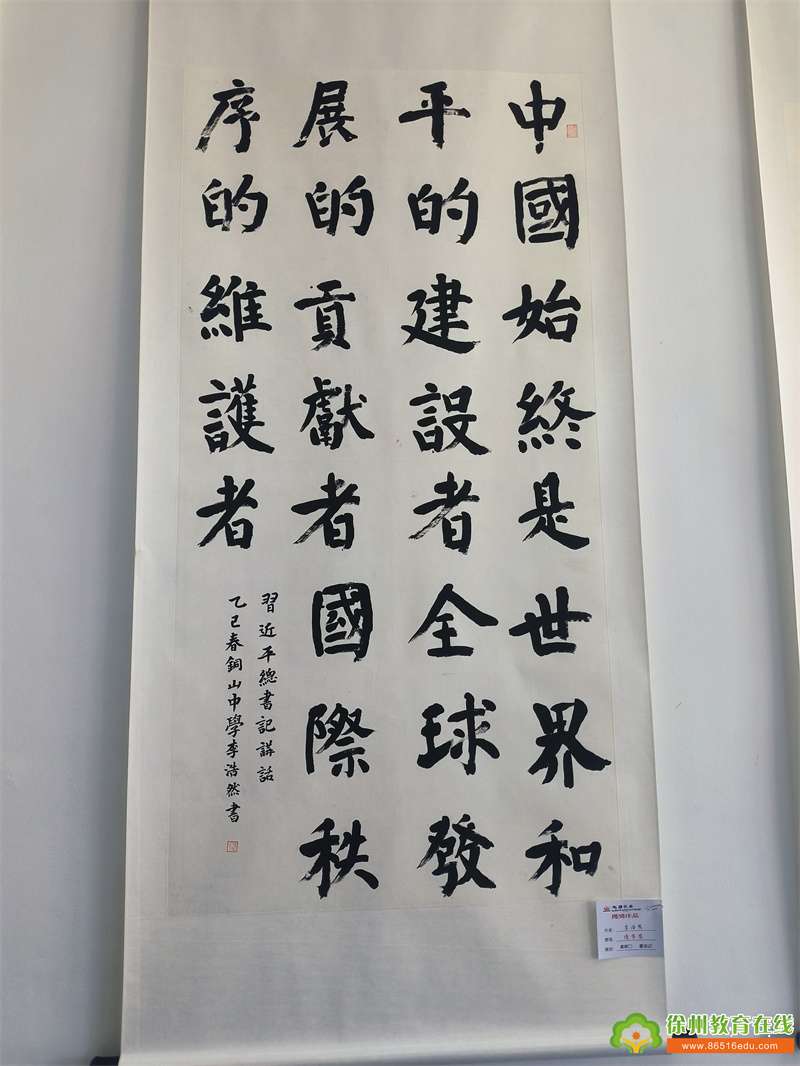 中國始終是世界和
平的建設者全球發
展的貢獻者國際秩
序的維護者
習近平總書記講話
乙巳春銅山中學李浩然書
作者 李浩然
徐州教育在线
www.86516edu.com